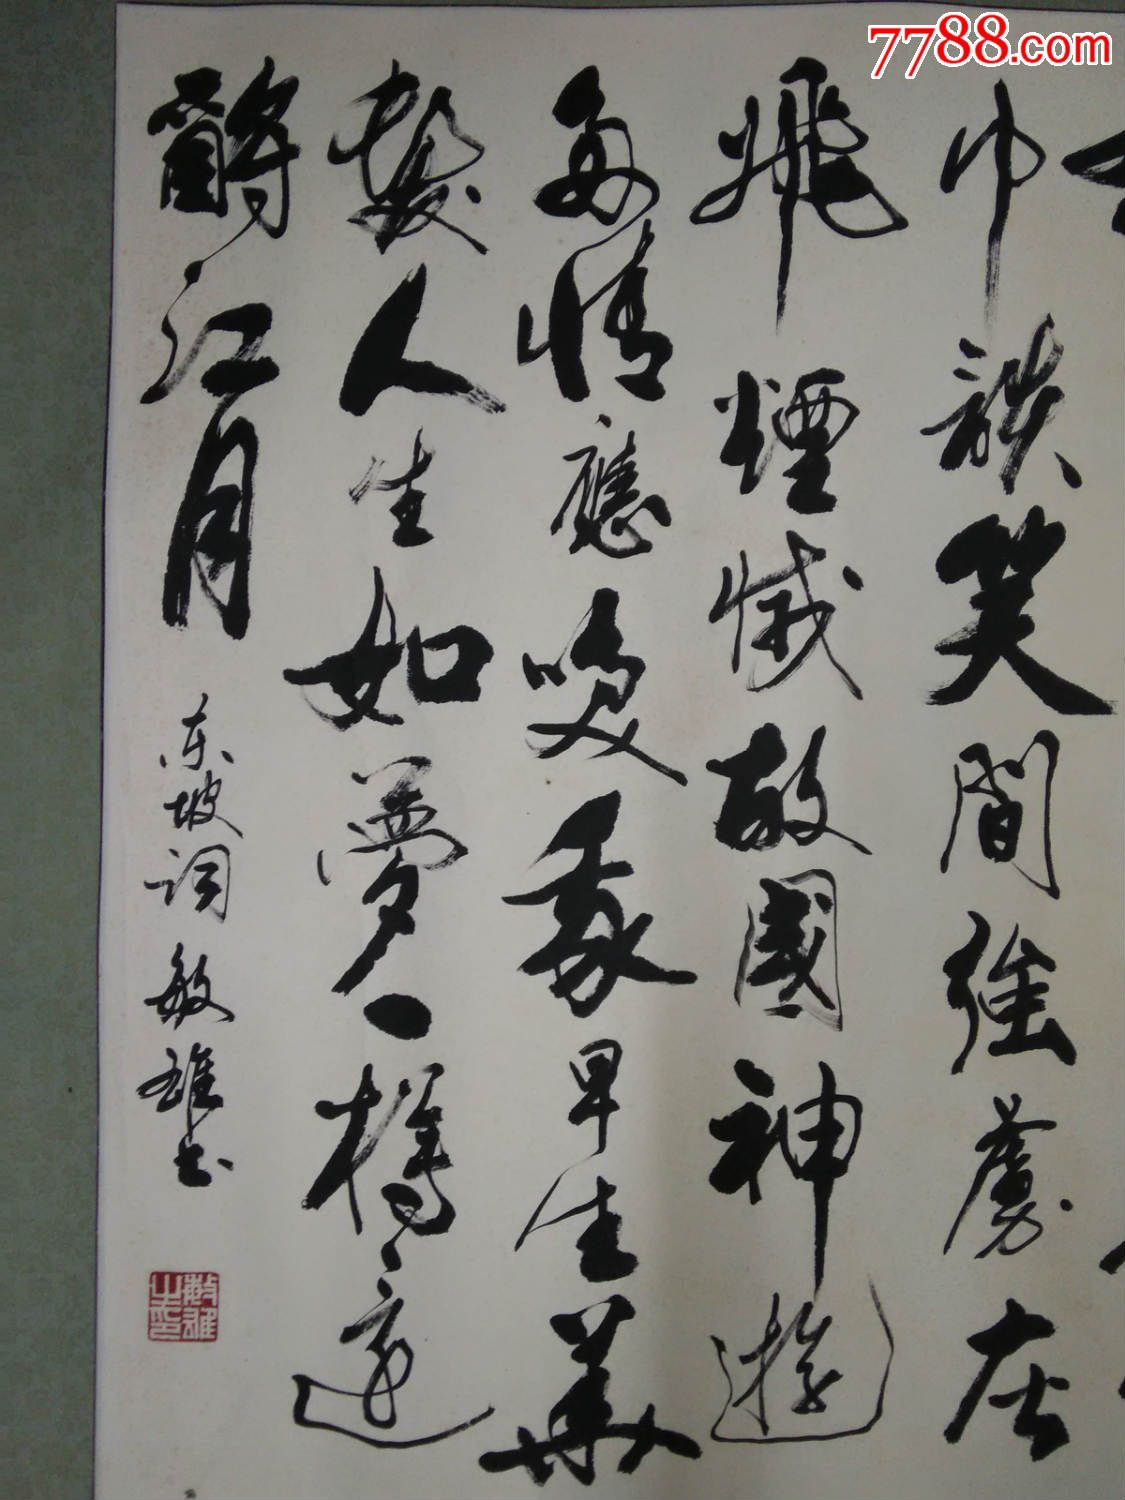 7788.com
巾談笑間強虜灰
飛煙滅故國神遊
多情應咲我早生華
髮人生如夢一樽還
酹江月
东坡詞敏雄书
敏雄之印